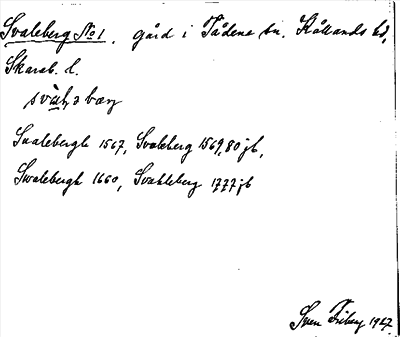 Svaleberg No 1. gård i Tådene sn. Kållands hd,
Skarab. l.
svὰl,ɜ bærj
Svalebergh 1567, Svaleberg 1569, 80 jb,
Swalebergh 1660, Svahleberg 1777 jb
Sven Friberg 1927